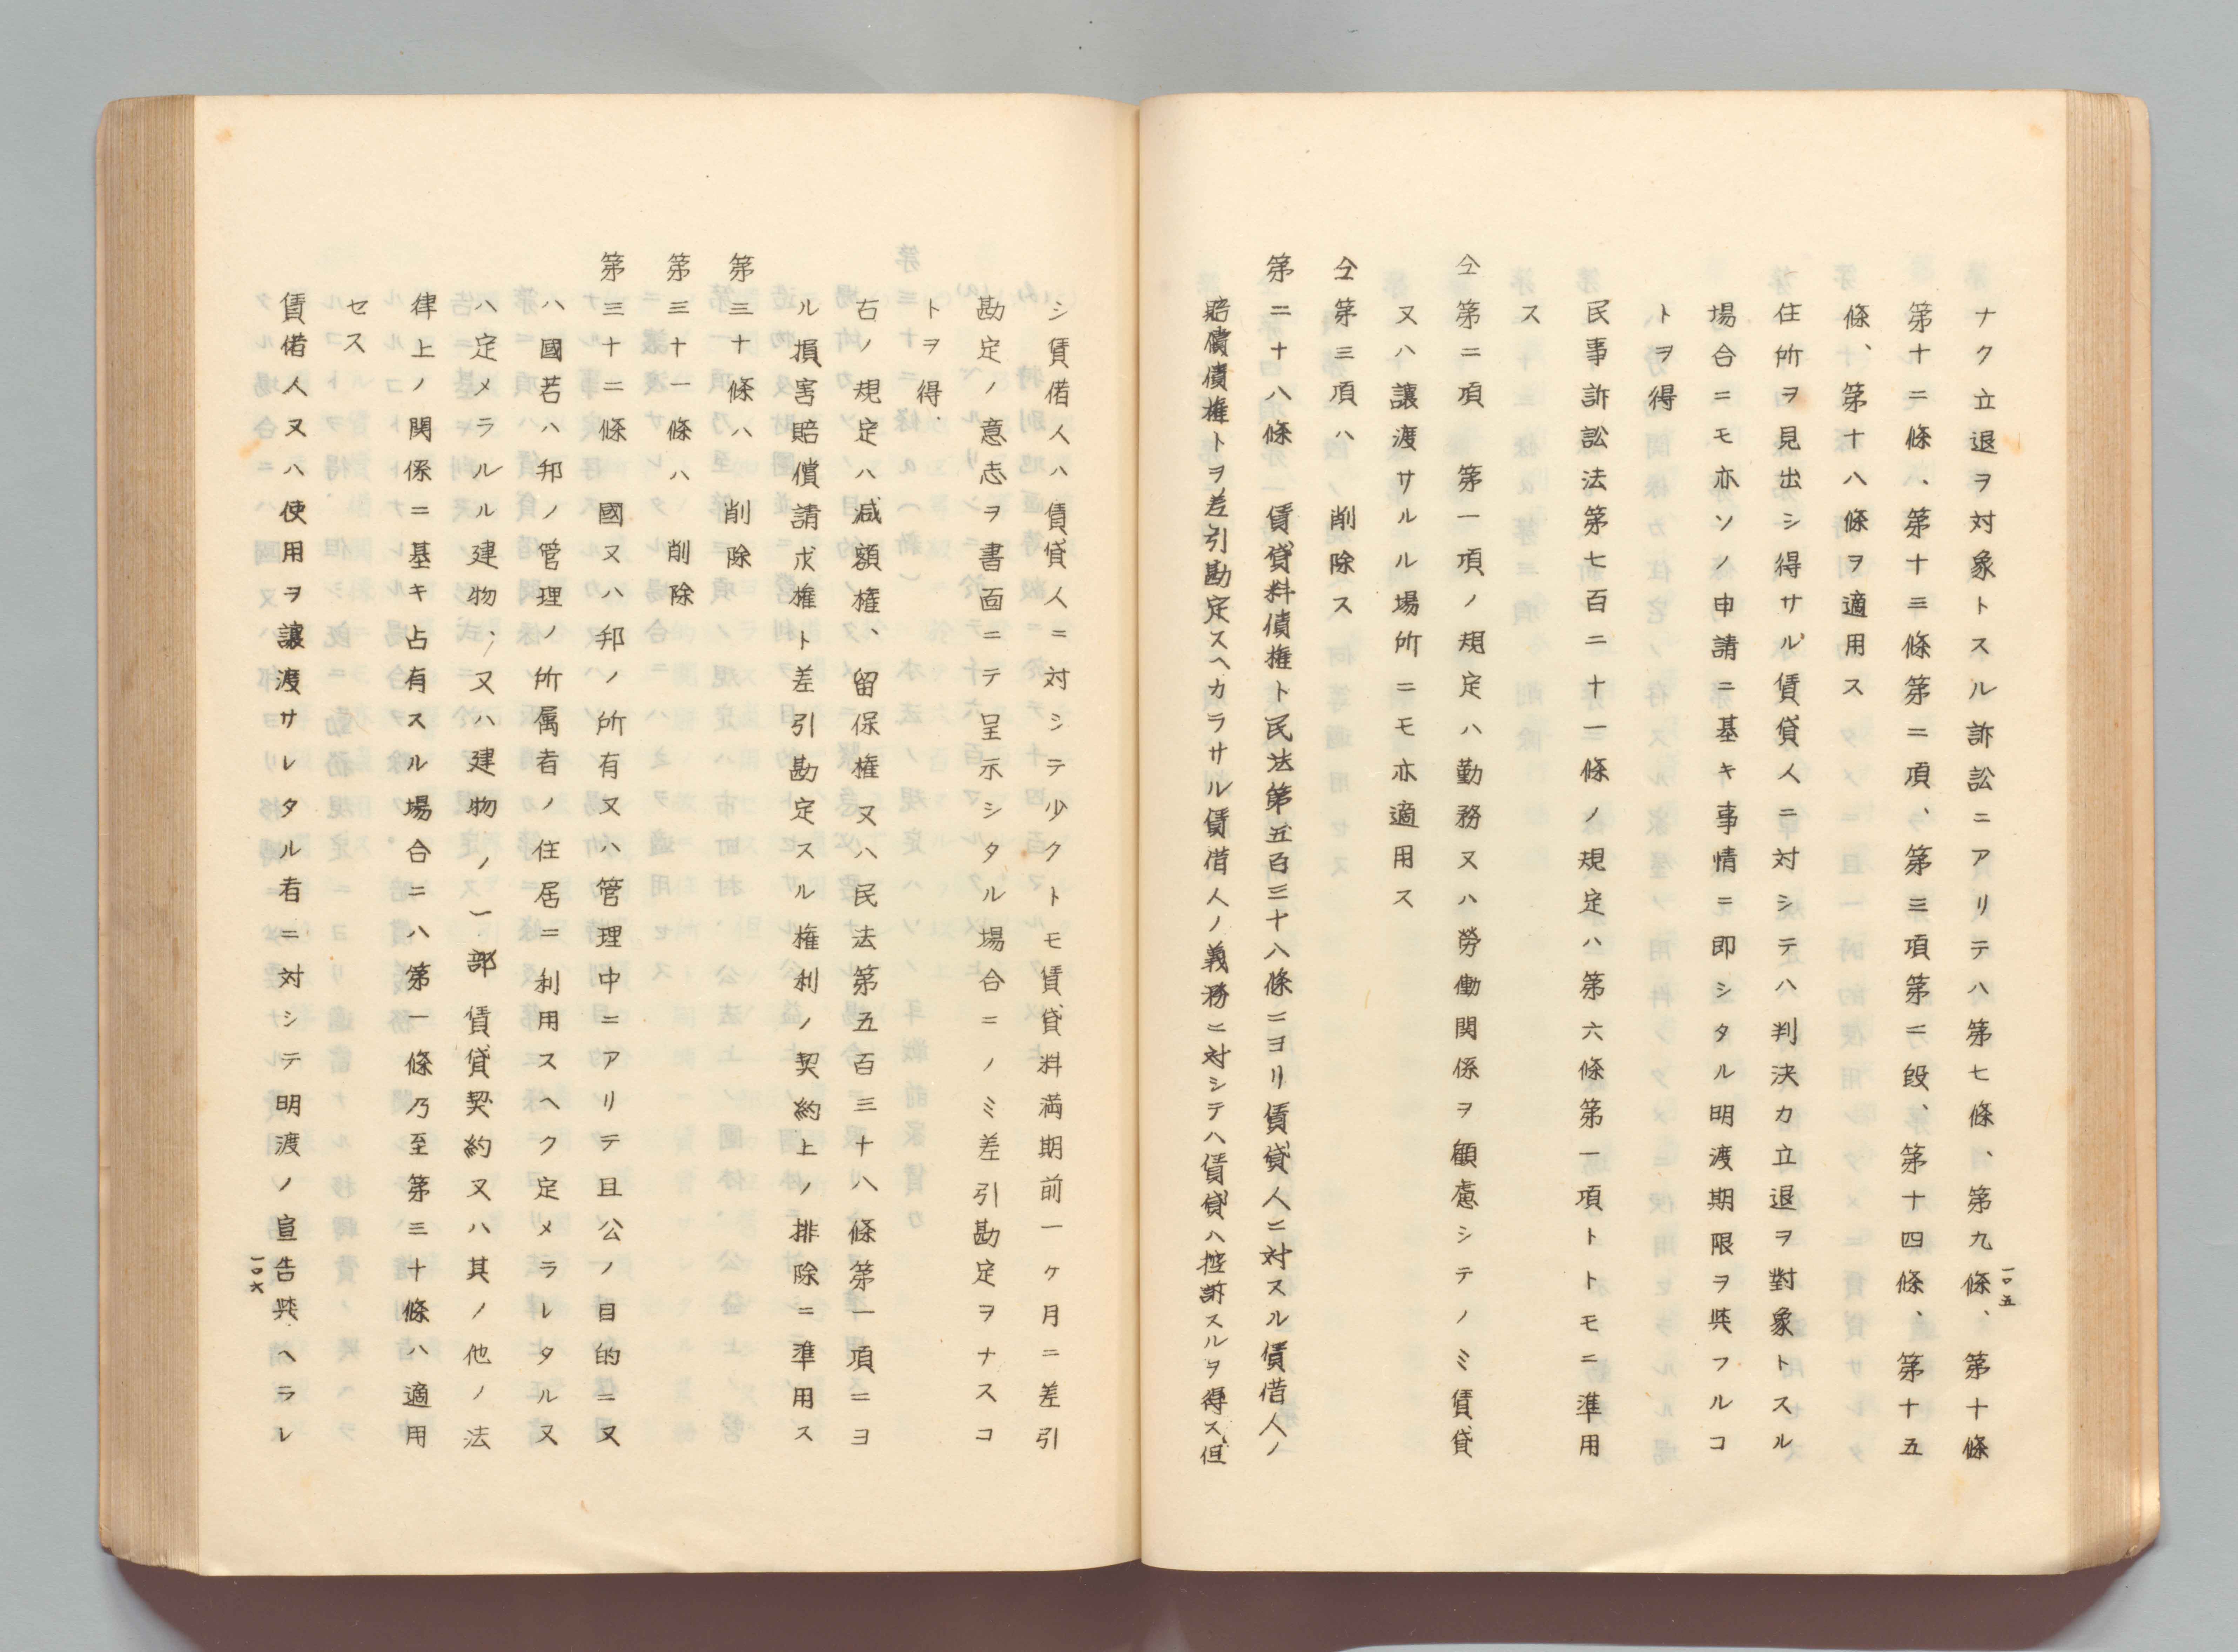 ナク立退ヲ対象トスル訴訟ニアリテハ第七條、第九條、第十條
第十二條、第十三條第二項、第三項第二段、第十四條、第十五
條、第十八條ヲ適用ス
住所ヲ見出シ得サル賃貸人ニ対シテハ判決カ立退ヲ對象トスル
場合ニモ亦ソノ申請ニ基キ事情ニ即シタル明渡期限ヲ與フルコ
トヲ得
民事訴訟法第七百二十一條ノ規定ハ第六條第一項トトモニ準用
ス
仝第二項 第一項ノ規定ハ勤務又ハ勞働関係ヲ顧慮シテノミ賃貸
又ハ讓渡サルル場所ニモ亦適用ス
仝第三項ハ 削除ス
第二十八條 賃貸料債権ト民法第五百三十八條ニヨリ賃貸人ニ対スル賃借人ノ
賠償債権トヲ差引勘定スヘカラサル賃借人ノ義務ニ対シテハ賃貸ハ控訴スルヲ得ス、但
一〇五
シ賃借人ハ賃貸人ニ対シテ少クトモ賃貸料満期前一ケ月ニ差引
勘定ノ意志ヲ書面ニテ呈示シタル場合ニノミ差引勘定ヲナスコ
トヲ得.
右ノ規定ハ減額権、留保権又ハ民法第五百三十八條第一項ニヨ
ル損害賠償請求権ト差引勘定スル権利ノ契約上ノ排除ニ準用ス
第三十條ハ 削除
第三十一條ハ 削除
第三十二條 國又ハ邦ノ所有又ハ管理中ニアリテ且公ノ目的ニ又
ハ國若ハ邦ノ管理ノ所属者ノ住居ニ利用スヘク定メラレタル又
ハ定メラルル建物、又ハ建物ノ一部賃貸契約又ハ其ノ他ノ法
律上ノ関係ニ基キ占有スル場合ニハ第一條乃至第三十條ハ適用
セス
賃借人又ハ使用ヲ讓渡サレタル者ニ対シテ明渡ノ宣告與ヘラレ
一〇六